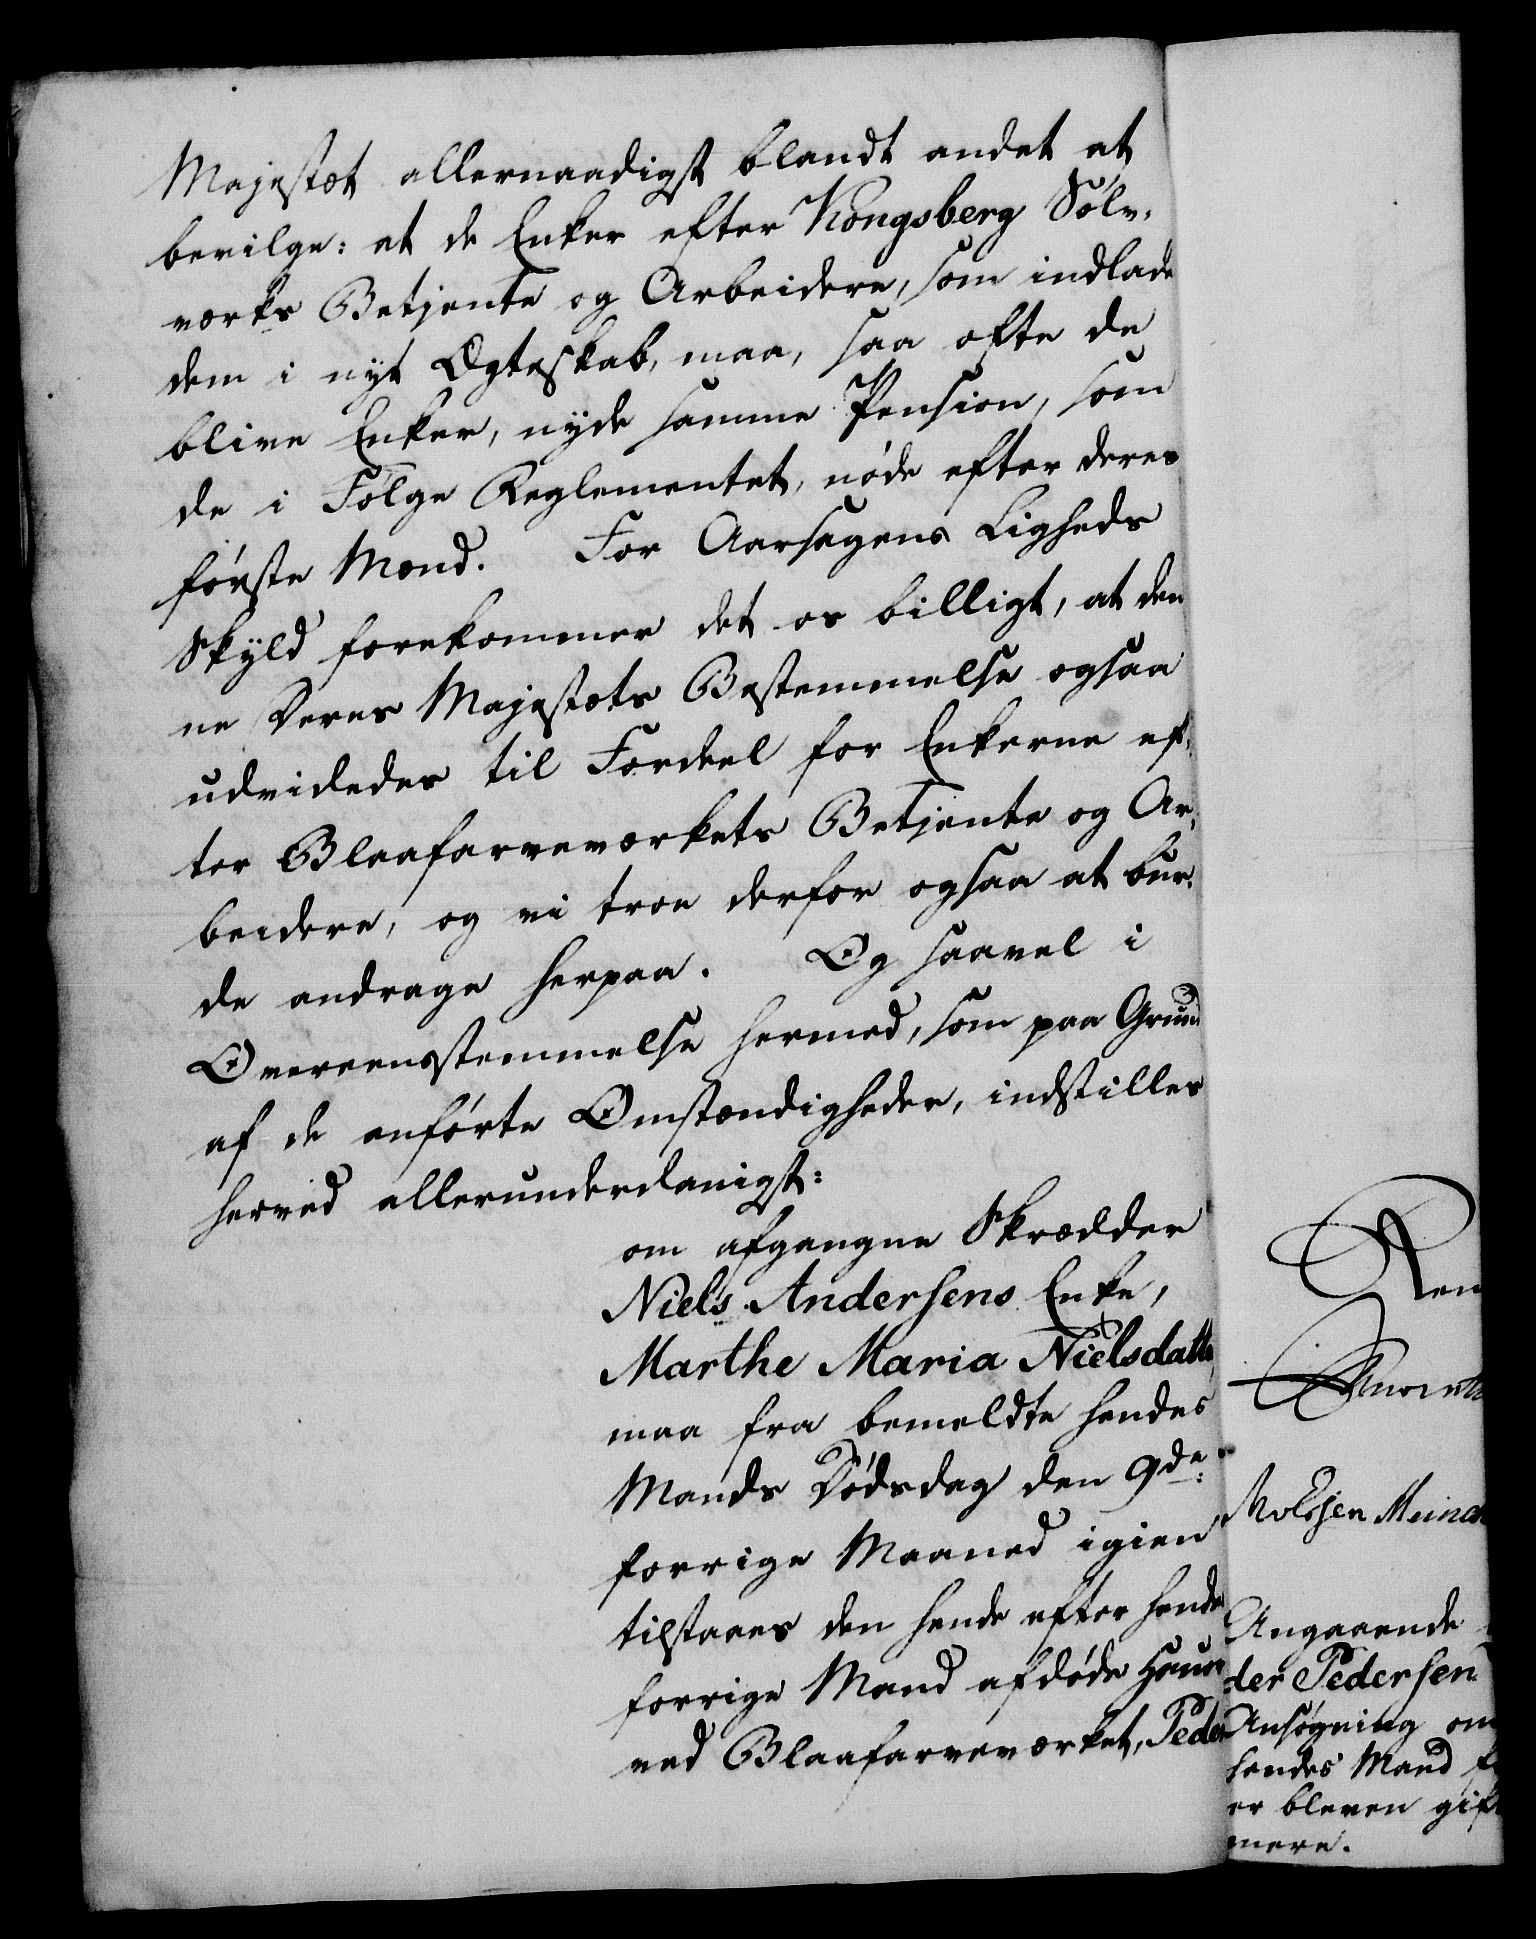 Majestæt allernaadigst blandt andet at
bevilge: at de Enker efter Kongsberg Sölv-
værks Betjente og Arbeidere, som indlade
dem i nyt Ægteskab, maa, saa ofte de
blive Enker, nyde samme Pension, som
de i Fölge Reglementet, nöde efter deres
förste Mænd. For Aarsagens Ligheds
Skyld forekommer det os billigt, at den
ne Deres Majestæts Bestemmelse ogsaa
udvidedes til Fordeel for Enkerne ef-
ter Blaafarveværkets Betjente og Ar-
beidere, og vi troe derfor ogsaa at bur-
de andrage herpaa. Og saavel i
Overeensstemmelse hermed, som paa Grund
af de anförte Omstændigheder, indstilles
herved allerunderdanigst:
om afgangne Skrædder
Niels Andersens Enke,
Marthe Maria Nielsdatte
maa fra bemeldte hendes
Mands Dödsdag den 9de
forrige Maaned igien
tilstaaes den hende efter hende
forrige Mand afdöde
ved Blaafarveværket, Peder
Ren
Angaaende
der Pedersen
Ansögning om
hendes Mand
er bleven gift
mere.